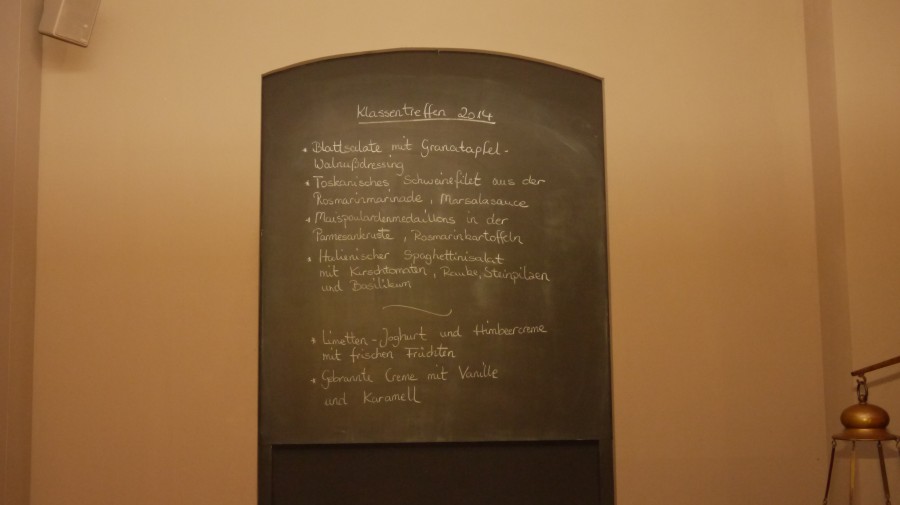 Klassentreffen 2014
* Blattsalate mit Granatapfel-
Walnußdressing
* Toskanisches Schweinefilet aus der
Rosmarinmarinade, Marsalasauce
* Maispoulardenmedaillons in der
Parmesankruste, Rosmarinkartoffeln
* Italienischer Spaghettinisalat
mit Kirschtomaten, Rauke, Steinpilzen
und Basilikum
* Limetten-Joghurt und Himbeercreme
mit frischen Früchten
* Gebrannte Creme mit Vanille
und Karamell